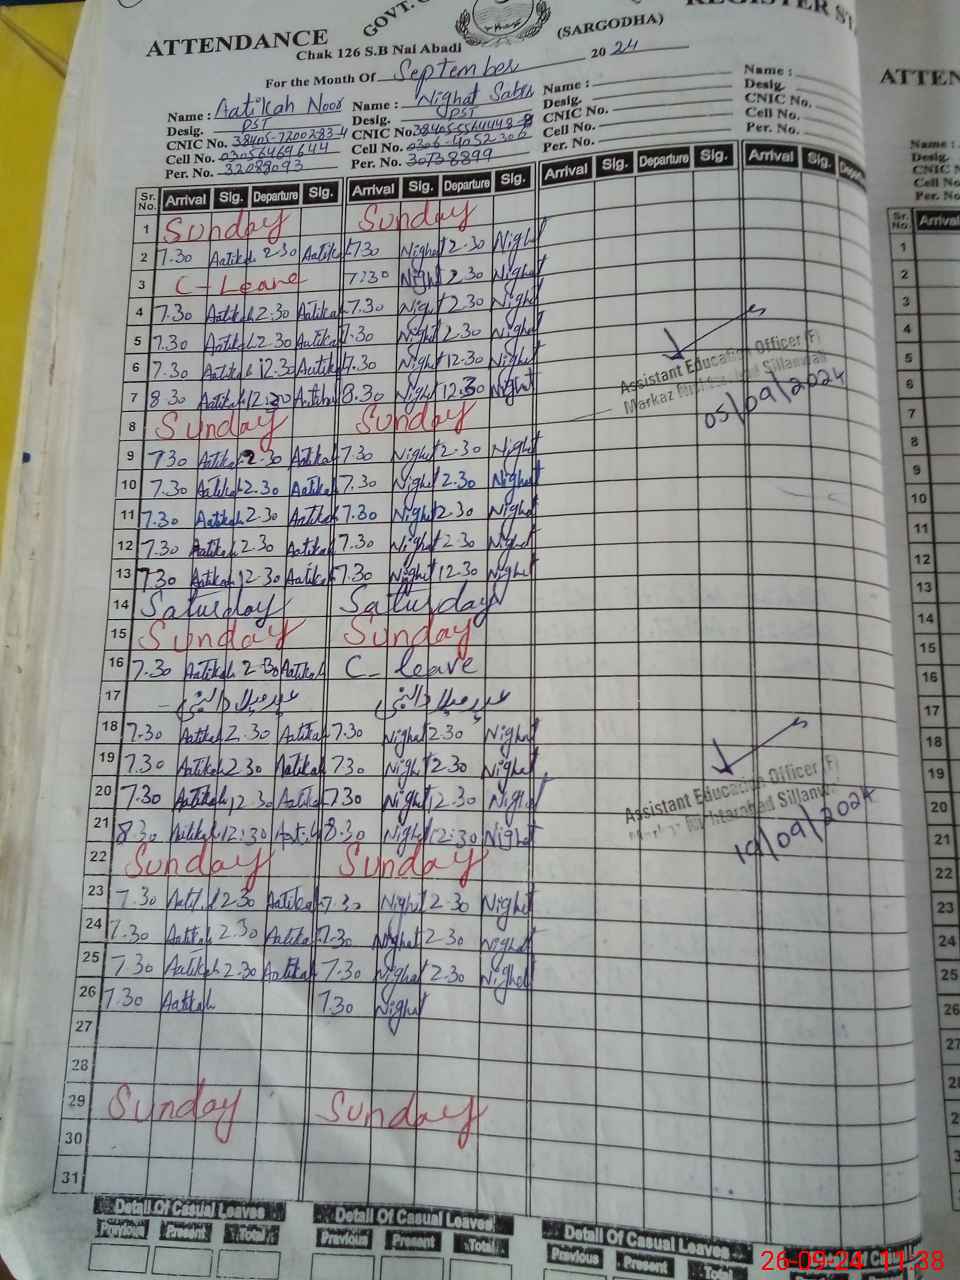 ATTENDANCE GOVT. REGISTER
Chak 126 S.B Nai Abadi (SARGODHA)
For the Month Of September 2024
Name : Aatikah Noor Name : Nighat Name : Name :
Desig. PST Desig. PST Desig. Desig.
CNIC No. CNIC No. CNIC No. CNIC No.
Cell No. 03056469644 Cell No. 0306-4052306 Cell No. Cell No.
Per. No. 32088093 Per. No. 30738899 Per. No. Per. No.
Sr. No. Arrival Sig. Departure Sig. Arrival Sig. Departure Sig. Arrival Sig. Departure Sig. Arrival Sig. Departure
1 Sunday Sunday
2 7.30 Aatikah 2.30 Aatikah 7.30 Nighat 2.30 Nighat
3 C-Leave 7:30 Nighat 2.30 Nighat
4 7.30 Aatikah 2.30 Aatikah 7.30 Nighat 2.30 Nighat
5 7.30 Aatikah 2.30 Aatikah 7.30 Nighat 2.30 Nighat
6 7.30 Aatikah 12.30 Aatikah 7.30 Nighat 12.30 Nighat
7 8.30 Aatikah 12:30 Aatikah 8.30 Nighat 12.30 Nighat
Assistant Education Officer (F)
Markaz
05/09/2024
8 Sunday Sunday
9 7.30 Aatikah 2.30 Aatikah 7.30 Nighat 2.30 Nighat
10 7.30 Aatikah 2.30 Aatikah 7.30 Nighat 2.30 Nighat
11 7.30 Aatikah 2.30 Aatikah 7.30 Nighat 2.30 Nighat
12 7.30 Aatikah 2.30 Aatikah 7.30 Nighat 2.30 Nighat
13 7.30 Aatikah 12.30 Aatikah 7.30 Nighat 12.30 Nighat
14 Saturday Saturday
15 Sunday Sunday
16 7.30 Aatikah 2.30 Aatikah C- leave
17 عید میلاد النبی عید میلاد النبی
18 7.30 Aatikah 2.30 Aatikah 7.30 Nighat 2.30 Nighat
19 7.30 Aatikah 2.30 Aatikah 7.30 Nighat 2.30 Nighat
20 7.30 Aatikah 12.30 Aatikah 7.30 Nighat 12.30 Nighat
21 8.30 Aatikah 12:30 Aatikah 8.30 Nighat 12:30 Nighat
Assistant Education Officer (F)
19/09/2024
22 Sunday Sunday
23 7.30 Aatikah 2.30 Aatikah 7.30 Nighat 2.30 Nighat
24 7.30 Aatikah 2.30 Aatikah 7.30 Nighat 2.30 Nighat
25 7.30 Aatikah 2.30 Aatikah 7.30 Nighat 2.30 Nighat
26 7.30 Aatikah 7.30 Nighat
27
28
29 Sunday Sunday
30
31
Detail Of Casual Leaves Detail Of Casual Leaves Detail Of Casual Leaves
Previous Present Total Previous Present Total Previous Present Total
26-09-24 11:38